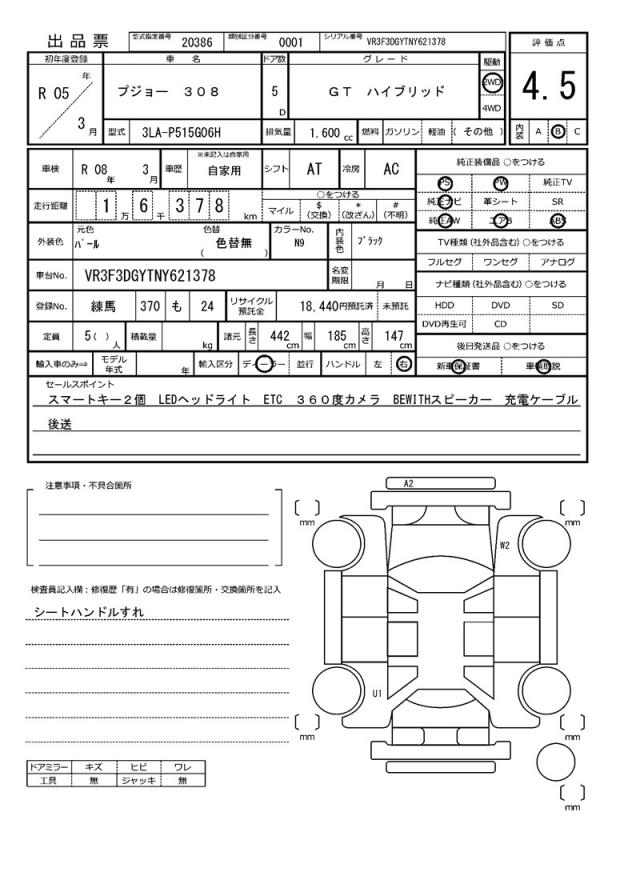 出品票 型式指定番号 20386 類別区分番号 0001 シリアル番号 VR3F3DGYTNY621378
評価点
4.5
内装 A B C
初年度登録 車名 ドア数 グレード 駆動
R 05 年 3 月 プジョー 308 5 D GT ハイブリッド 2WD 4WD
型式 3LA-P515G06H 排気量 1,600 cc 燃料 ガソリン 軽油 ( その他 )
車検 R 08 年 3 月 車歴 ※未記入は自家用 自家用 シフト AT 冷房 AC
走行距離 1 万 6 千 3 7 8 km ○をつける マイル $ (交換) * (改ざん) # (不明)
外装色 元色 パール 色替 ( 色替無 ) カラーNo. N9 内装色 ブラック
車台No. VR3F3DGYTNY621378 名変期限 月 日
登録No. 練馬 370 も 24 リサイクル預託金 18,440円預託済 未預託
定員 5( ) 人 積載量 kg 諸元 長さ 442 cm 幅 185 cm 高さ 147 cm
輸入車のみ⇒ モデル年式 年 輸入区分 ディーラー 並行 ハンドル 左 右
純正装備品 ○をつける
PS PW 純正TV
純正ナビ 革シート SR
純正AW エアB ABS
TV種類 (社外品含む) ○をつける
フルセグ ワンセグ アナログ
ナビ種類 (社外品含む) ○をつける
HDD DVD SD
DVD再生可 CD
後日発送品 ○をつける
新車保証書 車輌取説
セールスポイント
スマートキー2個 LEDヘッドライト ETC 360度カメラ BEWITHスピーカー 充電ケーブル
後送
注意事項・不具合箇所
検査員記入欄：修復歴「有」の場合は修復箇所・交換箇所を記入
シートハンドルすれ
ドアミラー キズ ヒビ ワレ
工具 無 ジャッキ 無
A2
[ ] mm [ ] mm
W2
U1
[ ] mm [ ] mm
[ ] mm